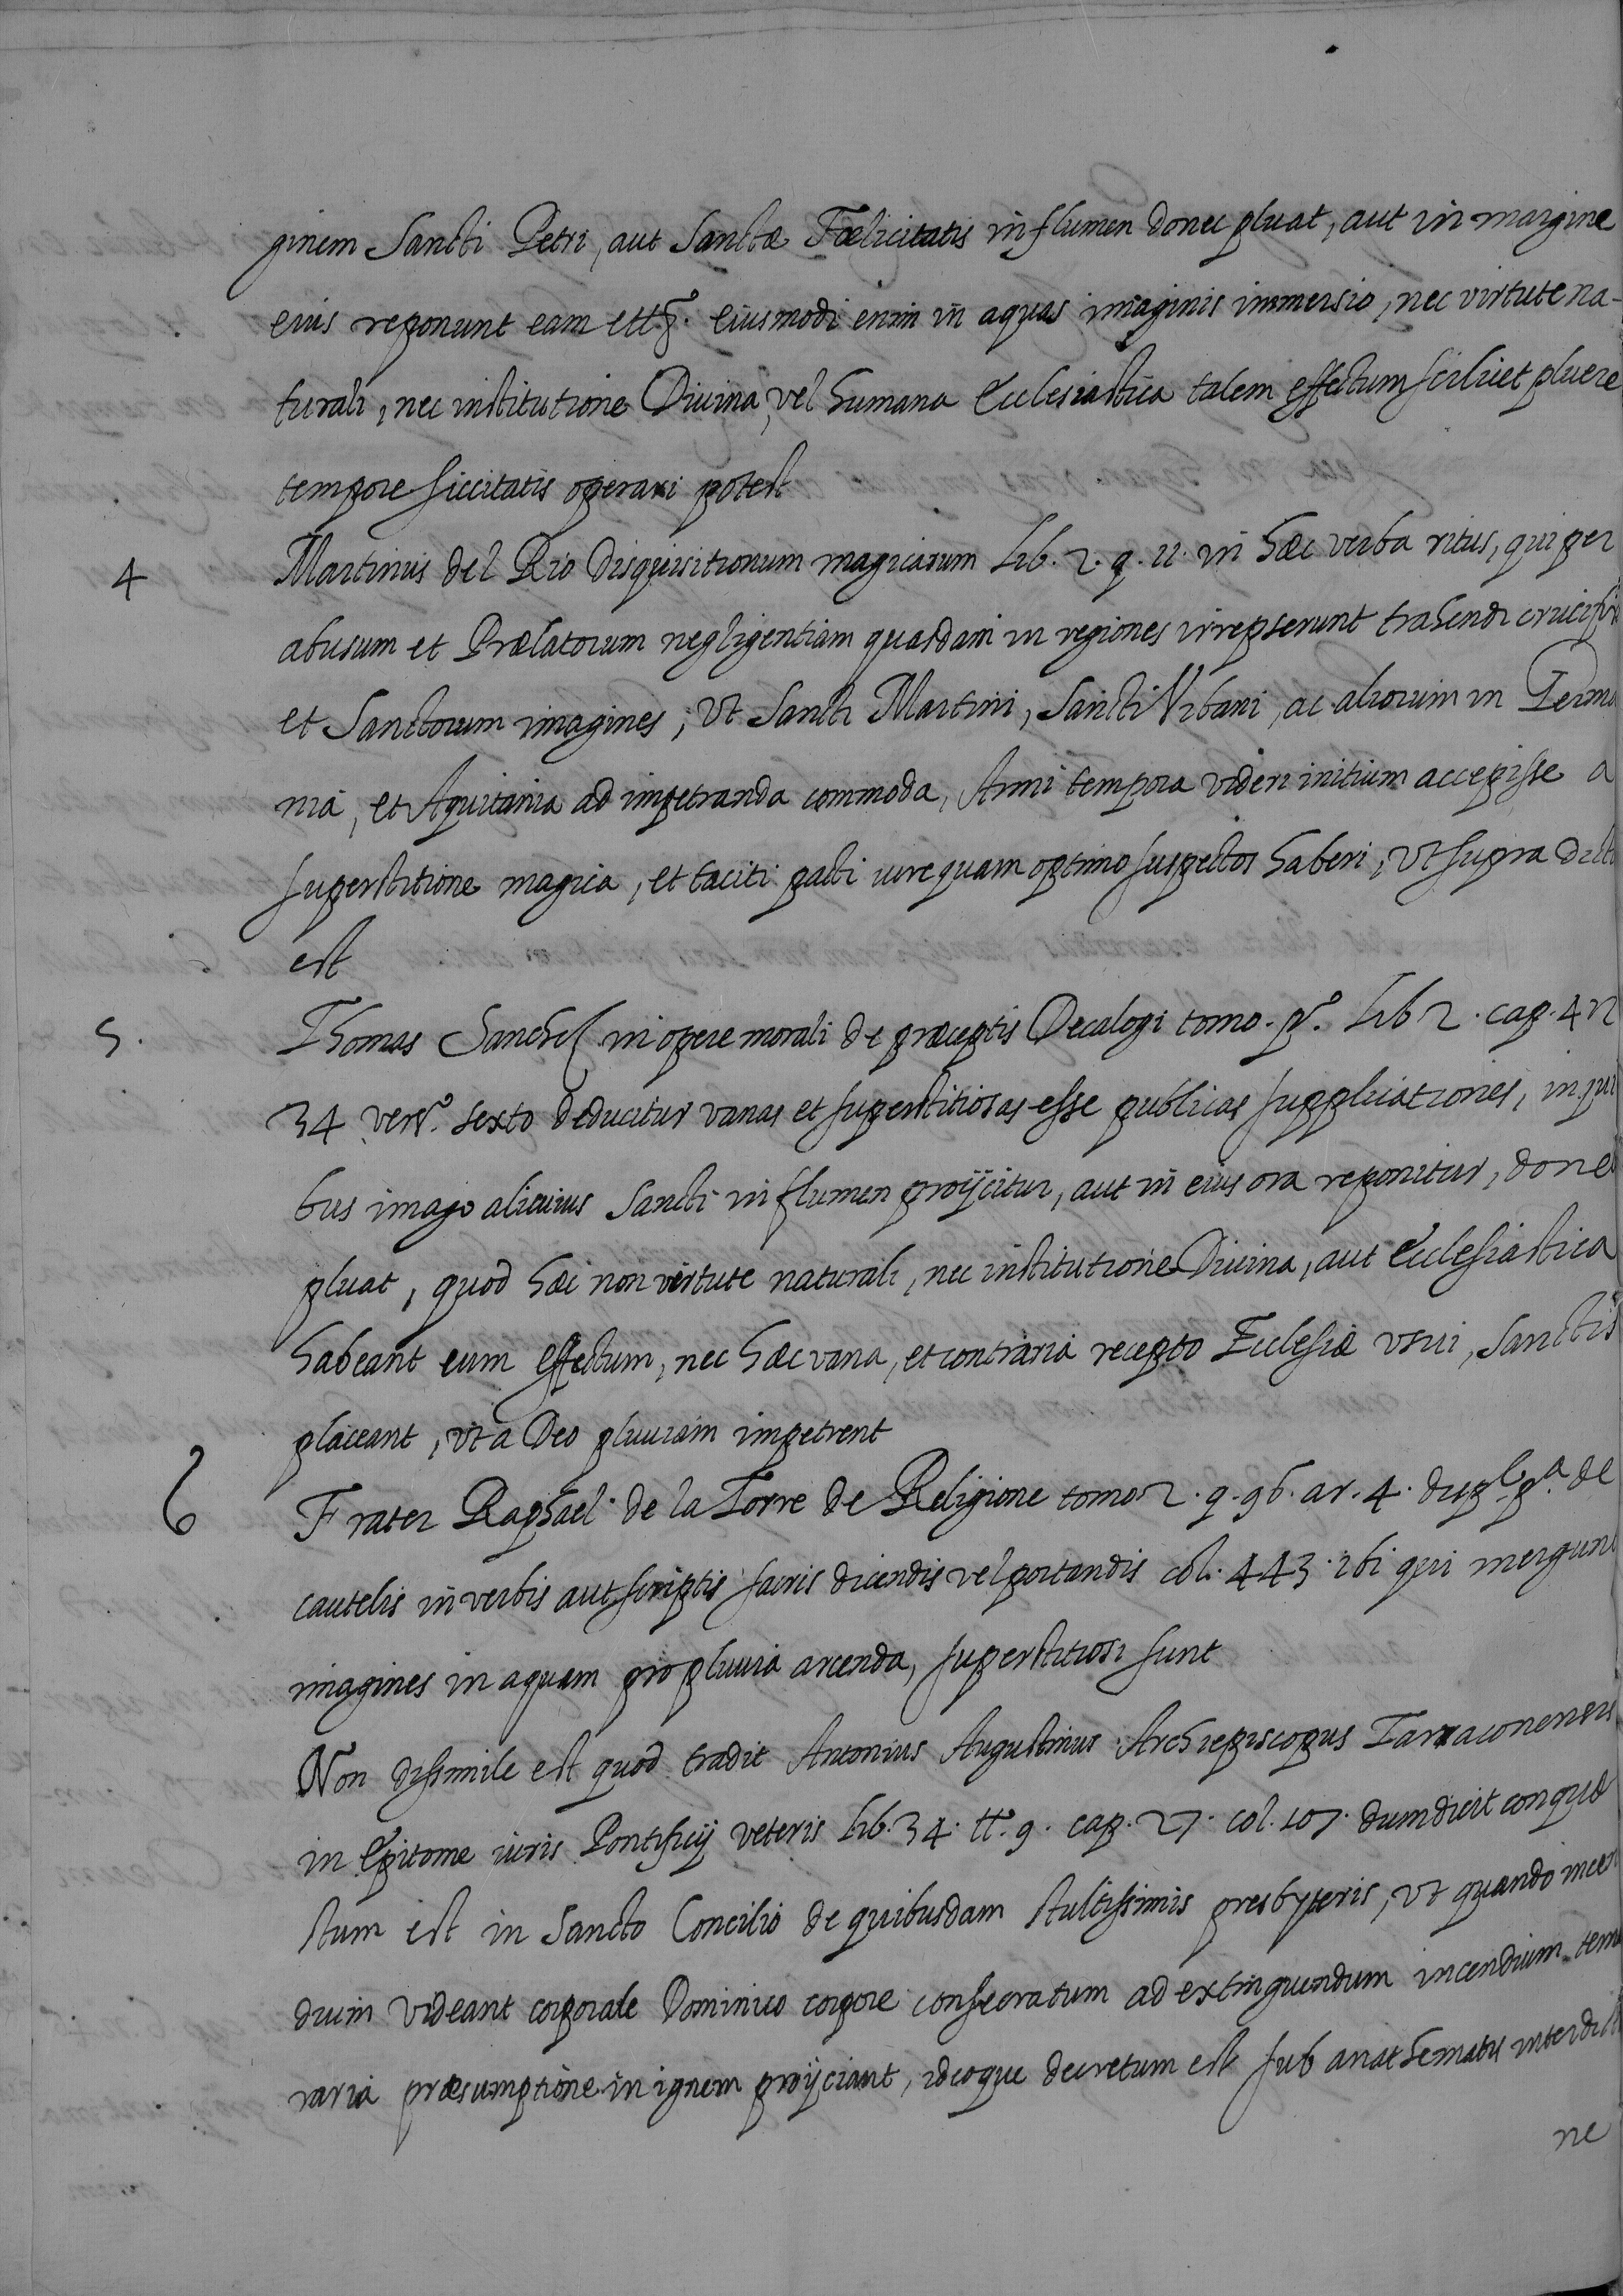 ginem Sancti Petri, aut Sanctæ Fœlicitatis in flumen donec pluat, aut in margine
eius reponunt eam ettª. eiusmodi enim in aquas imaginis immersio, nec virtute na-
turali, nec institutione Diuina, vel humana Ecclesiastica talem effectum scilicet pluere
tempore siccitatis operari potest
4 Martinus del Rio Disquisitionum magicarum lib. 2. q. 11. in hæc verba ritus, qui per
abusum et Prælatorum negligentiam quasdam in regiones irrepserunt trahendi crucifixi
et Sanctorum imagines, vt Sancti Martini, Sancti Vrbani, ac aliorum in Germa
nia, et Aquitania ad impetranda commoda, Anni tempora videri initium accepisse a
superstitione magica, et taciti pacti iure quam optimo suspectos haberi, vt supra dict
est
5. Thomas Sanchez in opere morali de præceptis Decalogi tomo. pº. lib 2. cap. 4 n
34 versº. sexto deducitur vanas et superstitiosas esse publicas supplicationes, in qui
bus imago alicuius Sancti in flumen proijcitur, aut in eius ora reponitur, done
pluat, quod hæc non virtute naturali, nec institutione Diuina, aut Ecclesiastica
habeant eum effectum, nec hæc vana, et contraria recepto Ecclesiæ vsui, Sanctis
placeant, vt a Deo pluuiam impetrent
6 Frater Raphael de la Torre de Religione tomo 2. q. 96. ar. 4. dupl. pª. de
cautelis in verbis aut scriptis sacris dicendis vel portandis col. 443. ibi qui mergunt
imagines in aquam pro pluuia arcenda, superstitiosi sunt
Non dissimile est quod tradit Antonius Augustinus Archiepiscopus Tarraconensis
in Epitome iuris Pontificij veteris lib. 34. ttº. 9. cap. 27. col. 107. dum dicit conquæ
stum est in Sancto Concilio de quibusdam stultissimis presbyteris, vt quando incen
dium videant corporale Dominico corpore consecratum ad extinguendum incendium teme
raria præsumptione in ignem proijciant, ideoque decretum est sub anathematis interdict
ne